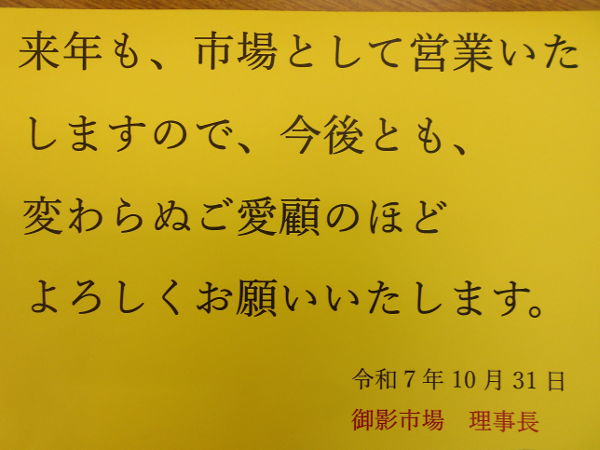 来年も、市場として営業いた
しますので、今後とも、
変わらぬご愛顧のほど
よろしくお願いいたします。
令和7年10月31日
御影市場　理事長